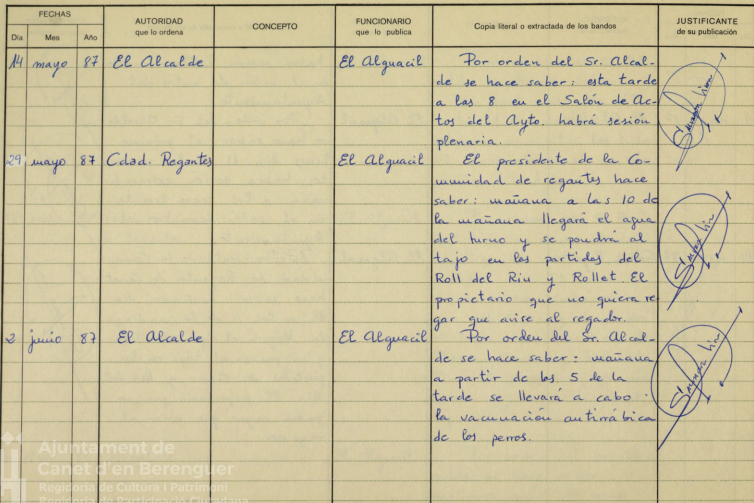 FECHAS
AUTORIDAD
que lo ordena
CONCEPTO
FUNCIONARIO
que lo publica
Copia literal o extractada de los bandos
JUSTIFICANTE
de su publicación
Día Mes Año
14 mayo 87 El Alcalde El Alguacil Por orden del Sr. Alcal-
de se hace saber: esta tarde
a las 8 en el Salón de Ac-
tos del Ayto. habrá sesión
plenaria.
29 mayo 87 Cdad. Regantes El Alguacil El presidente de la Co-
munidad de regantes hace
saber: mañana a las 10 de
la mañana llegará el agua
del turno y se pondrá al
tajo en las partidas del
Roll del Riu y Rollet. El
propietario que no quiera re
gar que avise al regador.
2 junio 87 El Alcalde El Alguacil Por orden del Sr. Alcal-
de se hace saber: mañana
a partir de las 5 de la
tarde se llevará a cabo
la vacunación antirrábica
de los perros.
Ajuntament de
Canet d'en Berenguer
Regidoria de Cultura i Patrimoni
Regidoria de Participació Ciutadana